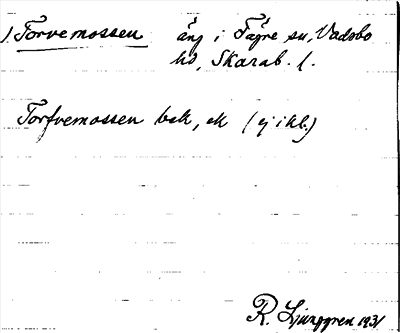 1. Torvemossen äng i Fägre sn, Vadsbo
hd, Skarab. l.
Torfvemossen bek, ek (ej i kb.)
R. Ljunggren 1931